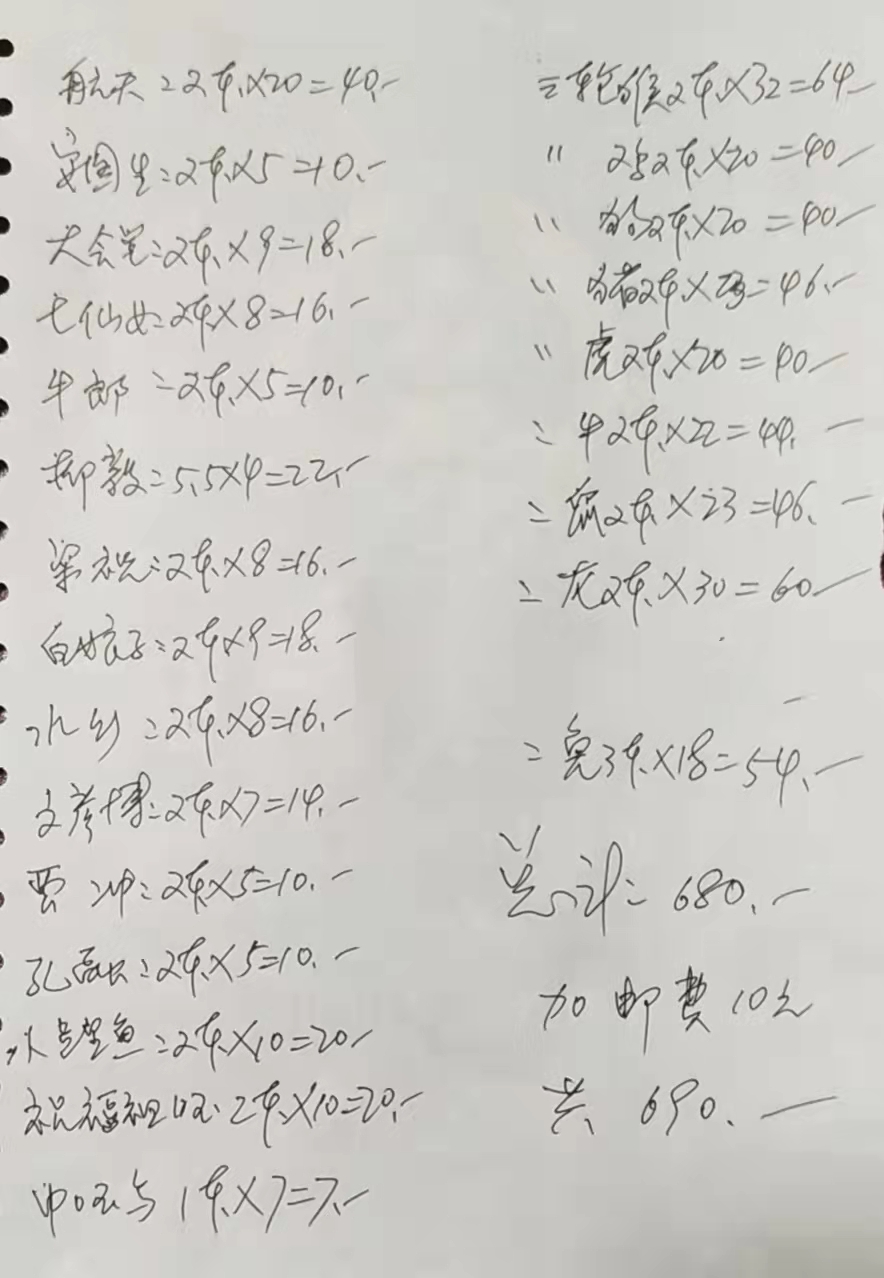 航天:2本×20=40.-
安图生:2本×5=10.-
大会堂:2本×9=18.-
七仙女:2本×8=16.-
牛郎:2本×5=10.-
柳毅:5.5×4=22.-
梁祝:2本×8=16.-
白娘子:2本×9=18.-
水乡:2本×8=16.-
文彦博:2本×7=14.-
贾冲:2本×5=10.-
孔融:2本×5=10.-
鲤鱼:2本×10=20-
祝福祖国:2本×10=20.-
1本×7=7.-
三轮猴2本×32=64-
" 2本×20=40-
" 2本×20=40-
" 猪2本×23=46.-
" 虎2本×20=40-
: 牛2本×22=44.-
: 鼠2本×23=46.-
: 龙2本×30=60-
: 兔3本×18=54.-
总计:680.-
加邮费10元
共690.-